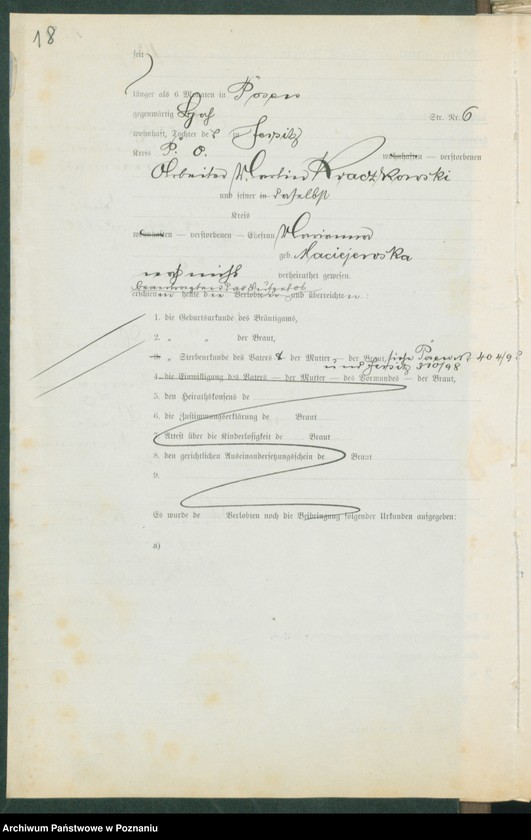 18
seit
länger als 6 Monaten in Posen
gegenwärtig Str. Nr. 6
wohnhaft, Tochter des in Jersitz
Kreis P. O. wohnhaften — verstorbenen
Arbeiter Martin Kraczkowski
und seiner in daselbst
Kreis
wohnhaften — verstorbenen — Ehefrau Marianna
geb. Maciejewska
noch nicht verheirathet gewesen.
beantragten das Aufgebot
erschienen heute die Verlobten und überreichten:
1. die Geburtsurkunde des Bräutigams,
2. " " der Braut,
3. " Sterbeurkunde des Vaters & der Mutter — der Braut, siehe 404/9
und Jersitz 310/98
4. die Einwilligung des Vaters — der Mutter — des Vormundes — der Braut,
5. den Heirathskonsens de
6. die Zustimmungserklärung de Braut
7. Attest über die Kinderlosigkeit de Braut
8. den gerichtlichen Auseinandersetzungsschein de Braut
9.
Es wurde de Verlobten noch die Beibringung folgender Urkunden aufgegeben:
a)
Archiwum Państwowe w Poznaniu